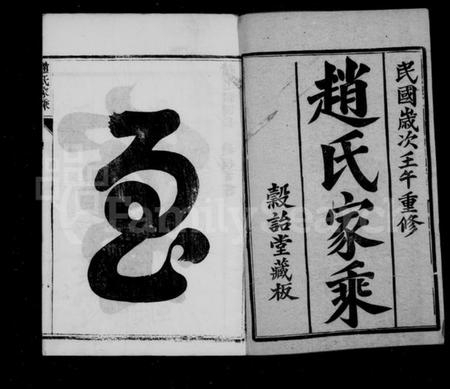 民國歲次壬午重修
趙氏家乘
穀詒堂藏板
趙氏家乘
FamilySearch